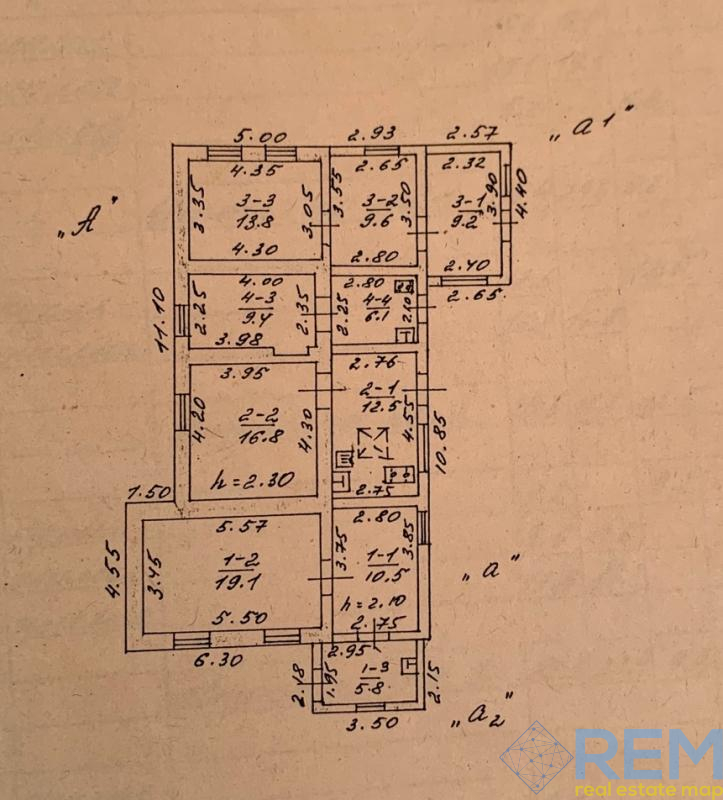 „а 1"
5.00
2.93
2.57
4.35
2.65
2.32
3.35
3-3
13.8
3.05
3.55
3-2
9.6
3.50
3-1
9.2
3.90
4.40
„А"
4.30
2.80
2.40
2.65
4.00
2.80
2.25
4-3
9.4
2.35
2.25
4-4
6.1
2.10
11.10
3.98
3.95
2.76
2-1
12.5
4.20
2-2
16.8
4.30
4.55
10.85
h=2.30
2.75
1.50
5.57
2.80
4.55
3.45
1-2
19.1
3.75
1-1
10.5
3.85
„а"
5.50
h=2.10
2.75
6.30
2.95
2.18
1.95
1-3
5.8
2.15
3.50
„а2"
REM
real estate map